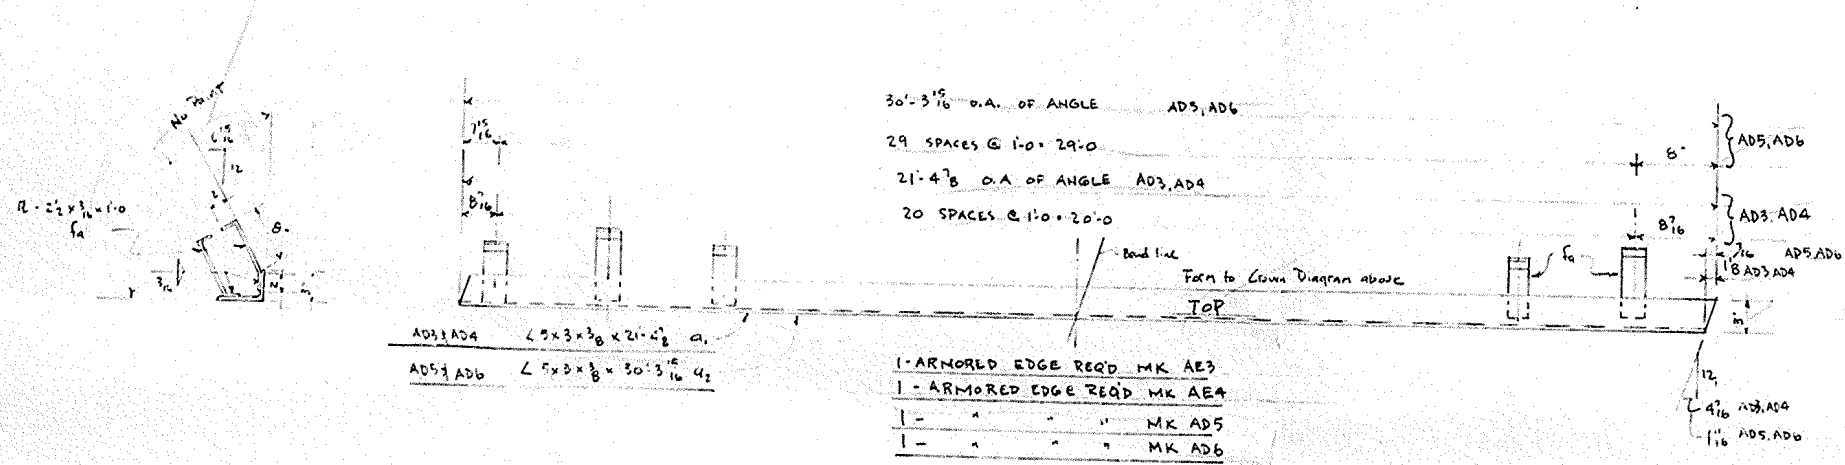 No Paint
6 15/16
12
8"
fa
3/16
7 15/16
8 7/16
30'-3 15/16 O.A. OF ANGLE AD5, AD6
29 SPACES @ 1-0 = 29-0
21-4 7/8 O.A OF ANGLE AD3, AD4
20 SPACES @ 1-0 = 20-0
Bend line
Form to Crown Diagram above
TOP
fa
8"
AD5, AD6
8 7/16
AD3, AD4
7/16 AD5, AD6
1 1/8 AD3, AD4
12
4 7/16 AD3, AD4
AD5, AD6
AD3 & AD4 L 5 x 3 x 3/8 x 21-4 7/8 a1
AD5 & AD6 L 5 x 3 x 3/8 x 30-3 15/16 a2
1 - ARMORED EDGE REQ'D MK AE3
1 - ARMORED EDGE REQ'D MK AE4
1 - " " " MK AD5
1 - " " " MK AD6